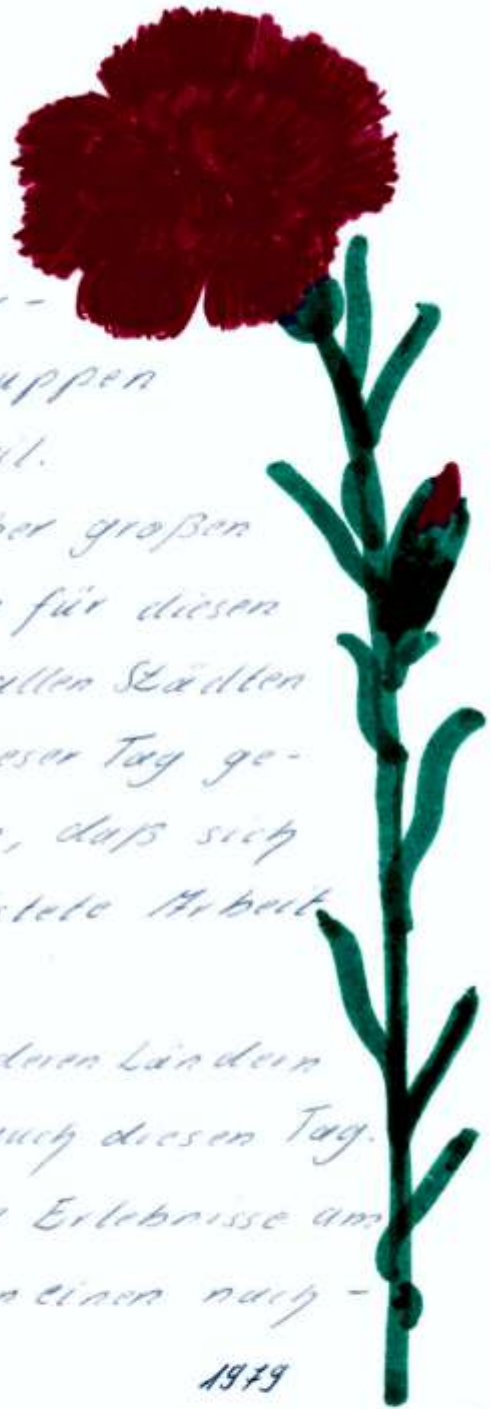 -
uppen
il.
ber großen
für diesen
allen Städten
eser Tag ge-
, daß sich
stete Arbeit
deren Ländern
uch diesen Tag.
Erlebnisse am
n einen nach-
1979